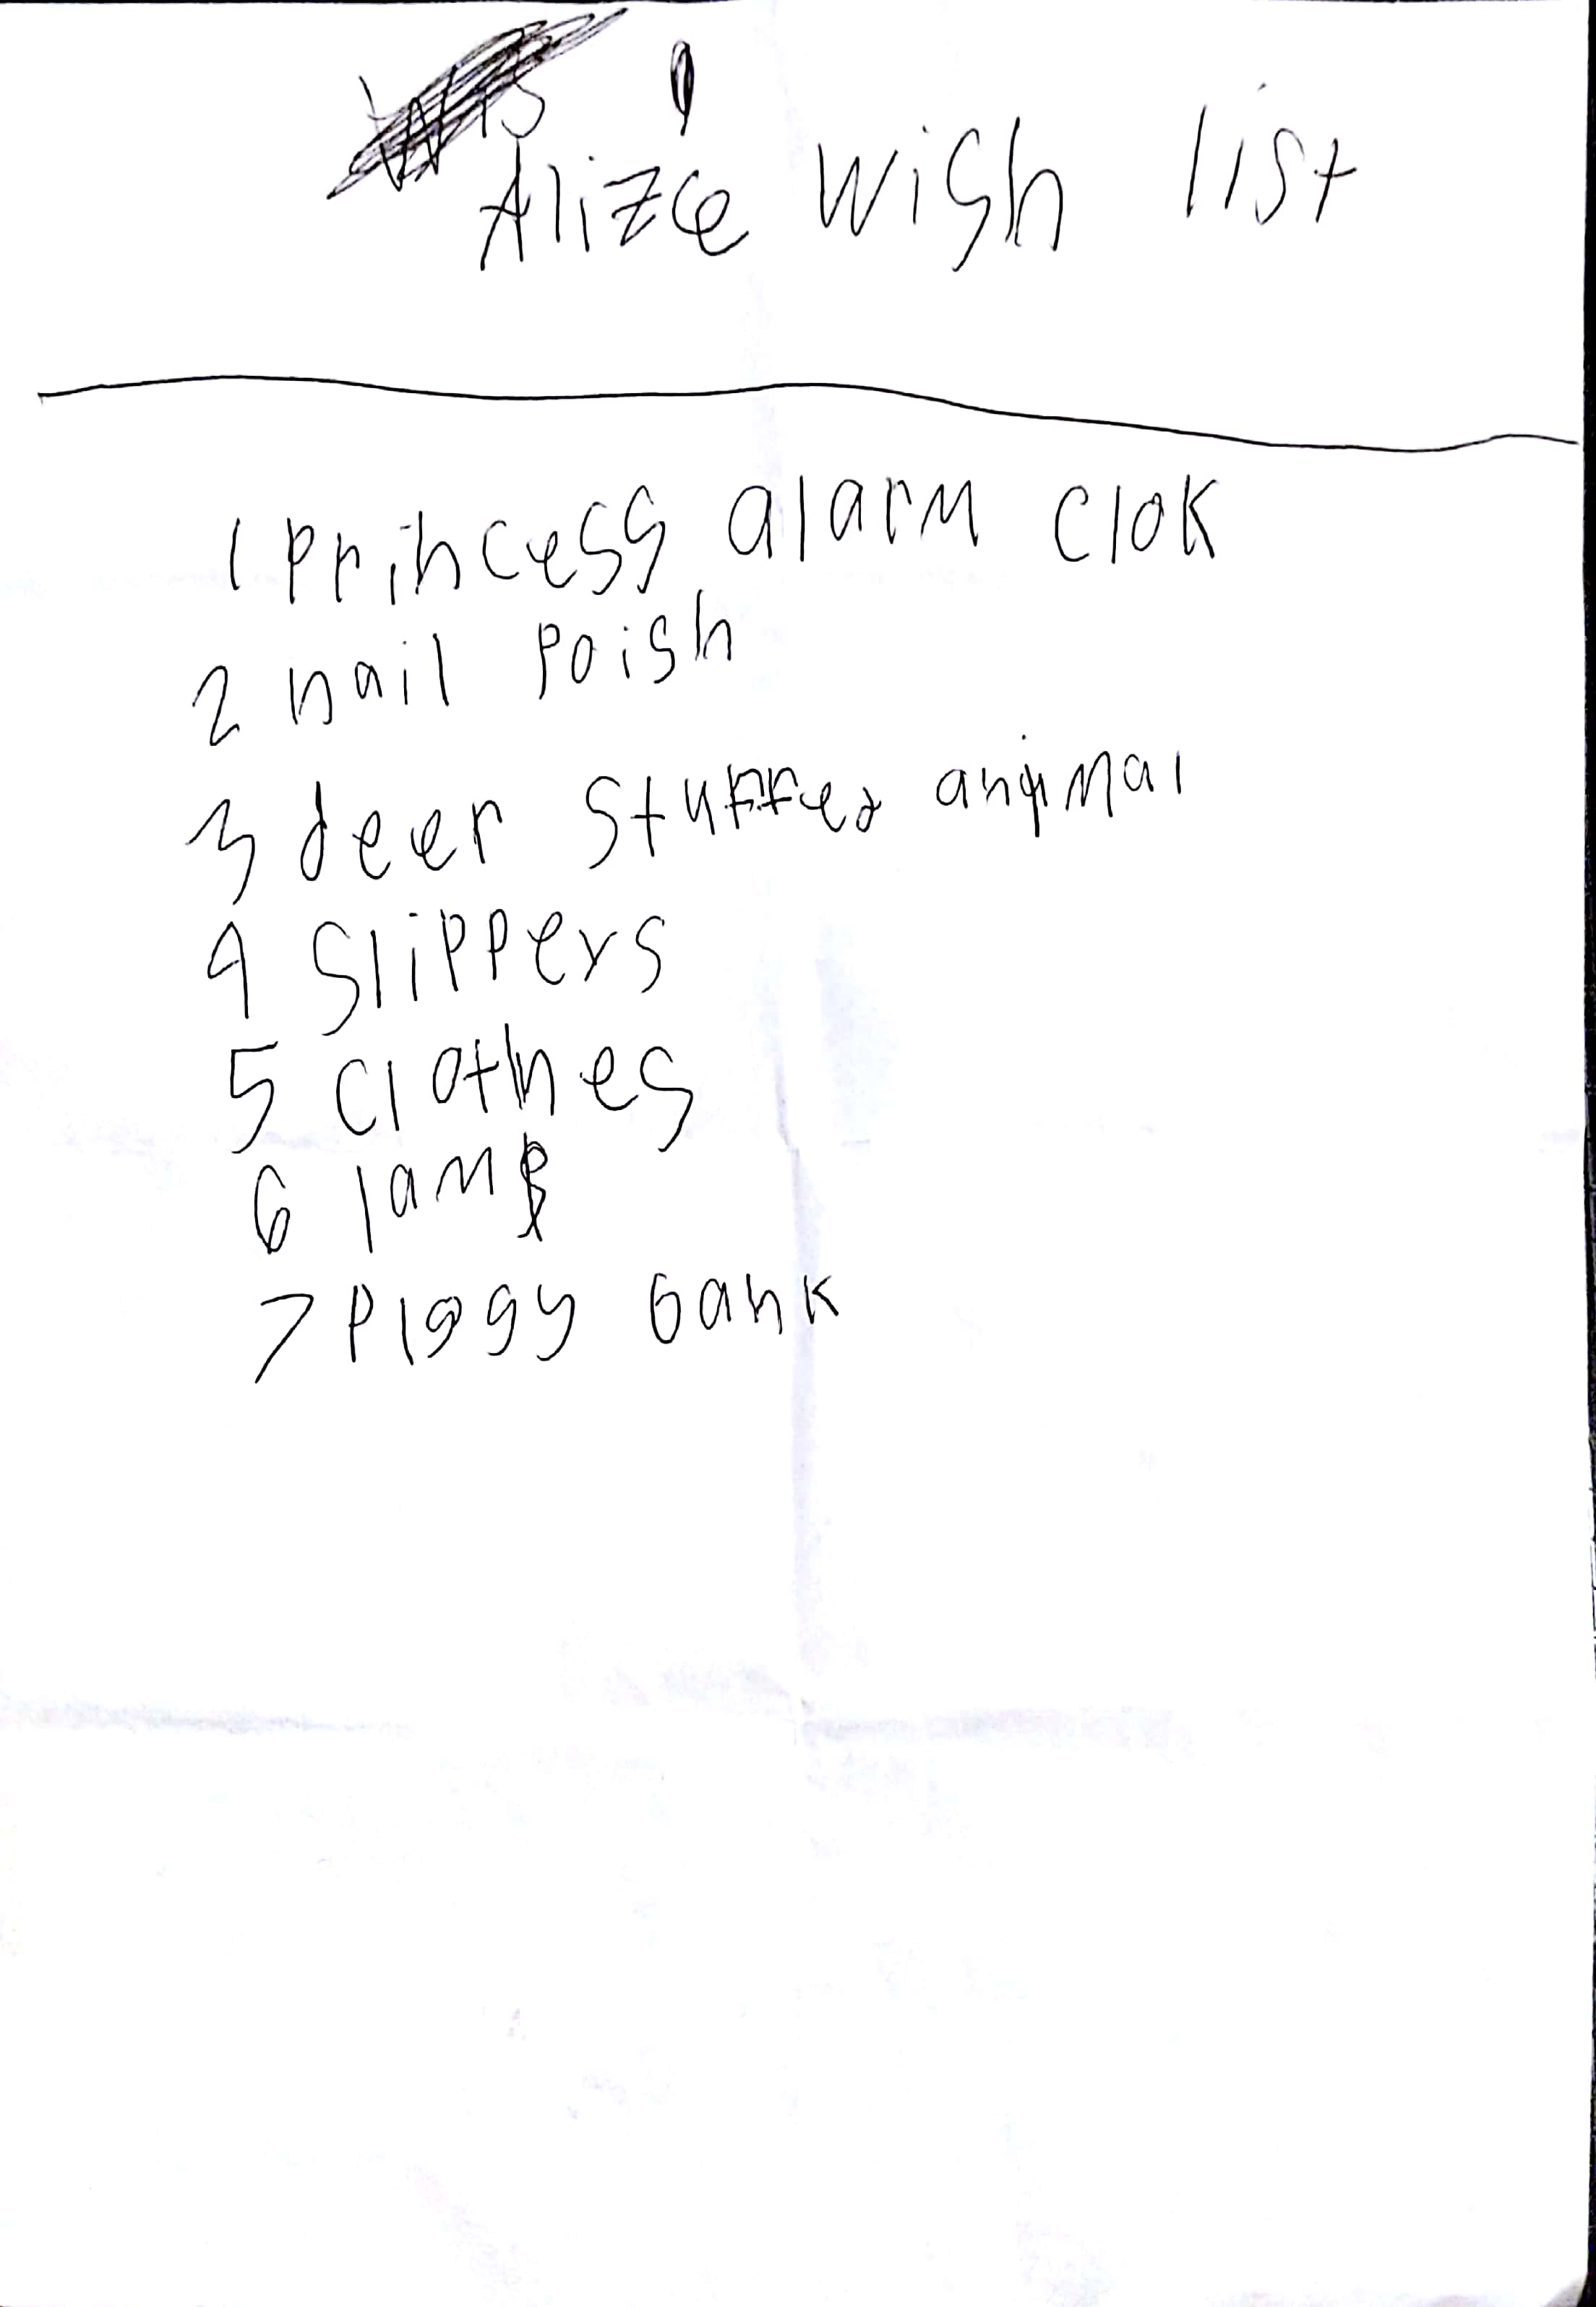 Alize wish list
1 Princess alarm clok
2 nail Poish
3 deer stuffed animal
4 Slippers
5 clothes
6 lamp
7 Piggy bank